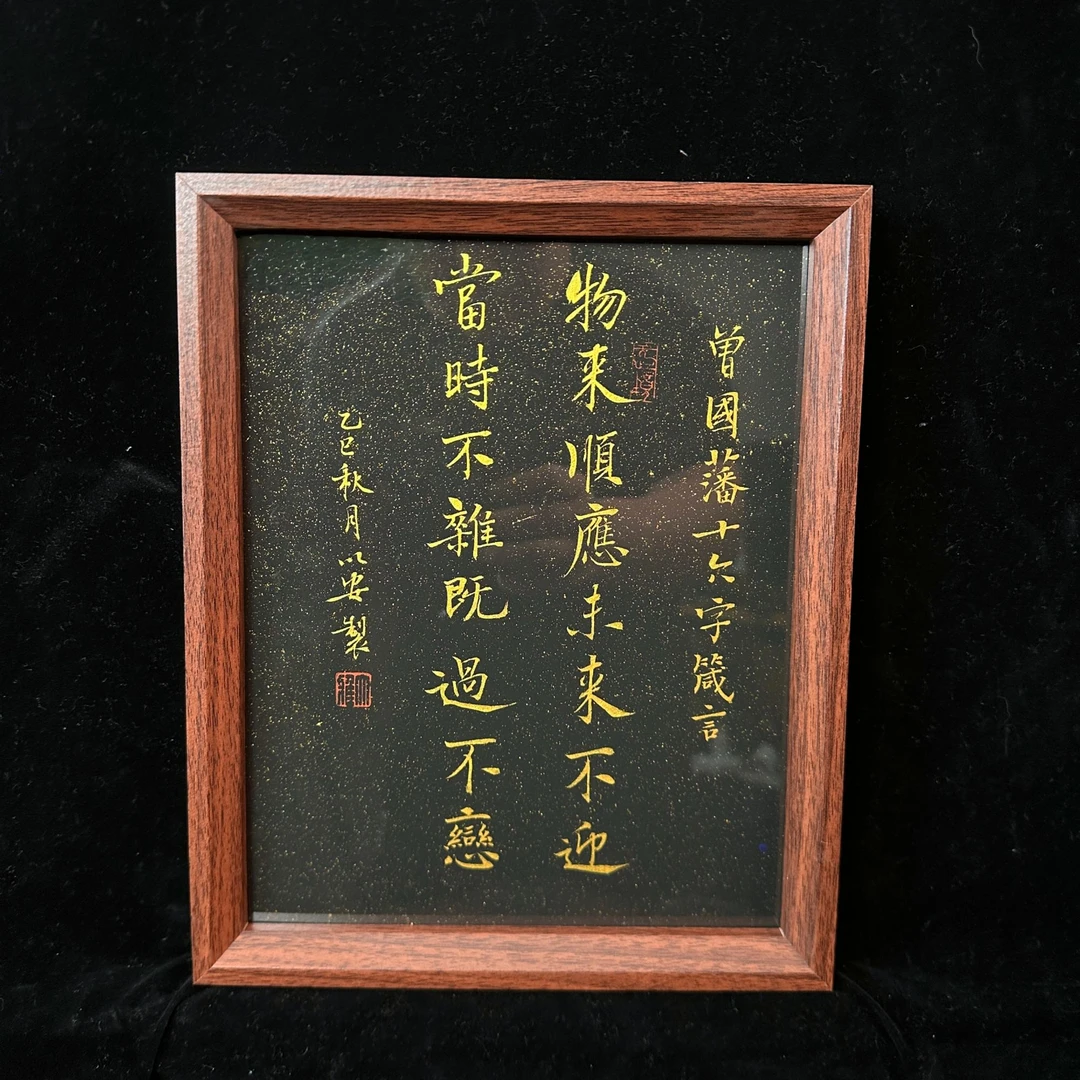 曾國藩十六字箴言
物来順應未来不迎
當時不雜既過不戀
乙巳秋月以安製